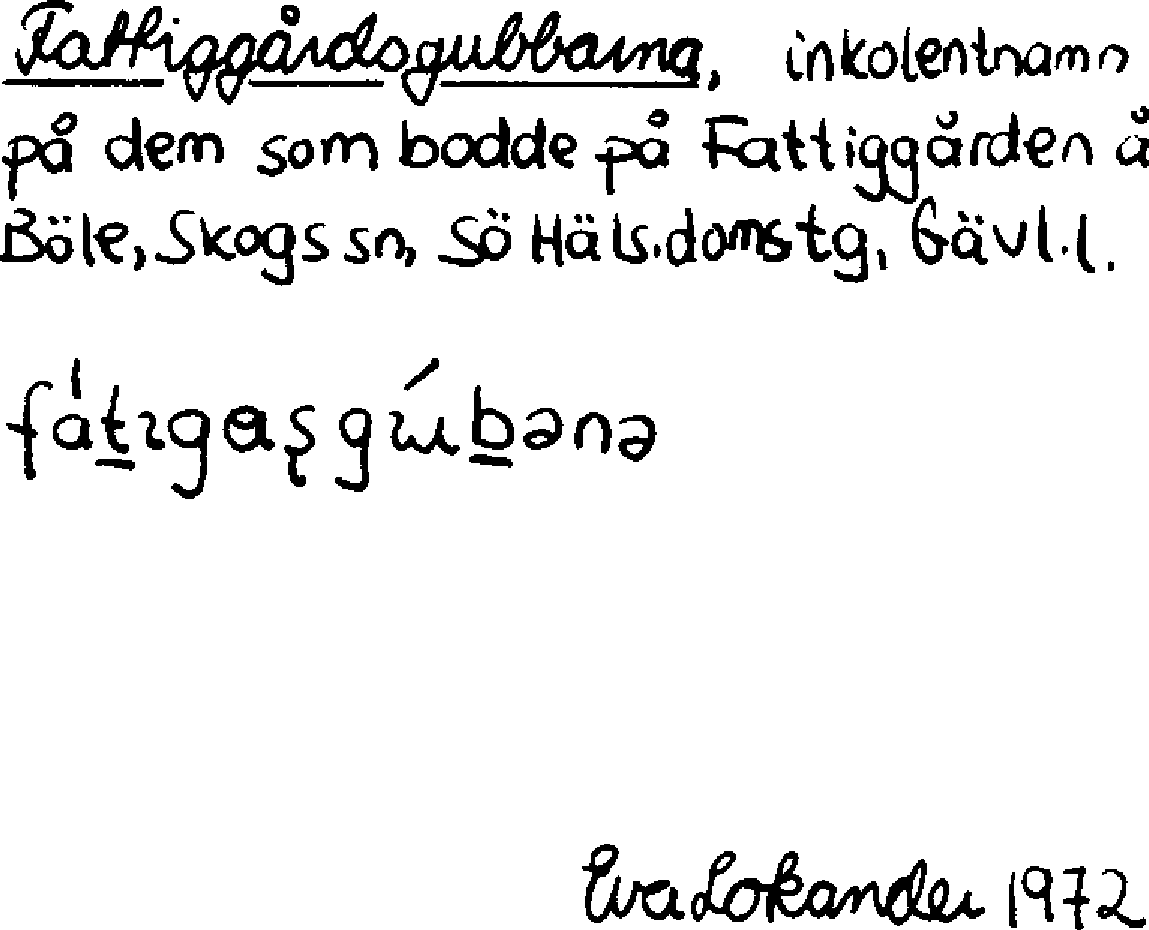 Fattiggårdsgubbarna, inkolentnamn
på dem som bodde på Fattiggården å
Böle, Skogs sn, Sö Häls.domstg, Gävl.l.
fát̲ɪgɑʂgɯ́b̲ənə
Eva Lokander 1972